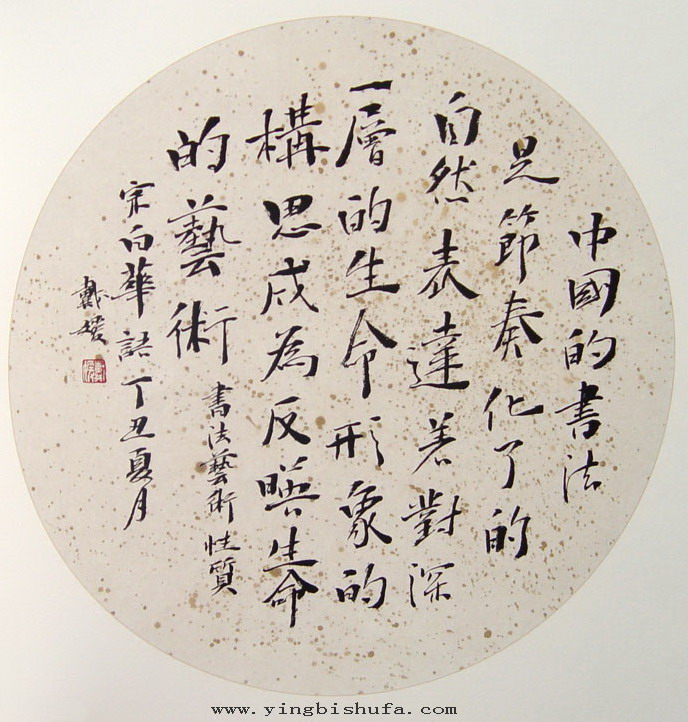 中國的書法
是節奏化了的
自然表達着對深
一層的生命形象的
構思成為反映生命
的藝術 書法藝術性質
宗白華語丁丑夏月
戴媛
www.yingbishufa.com